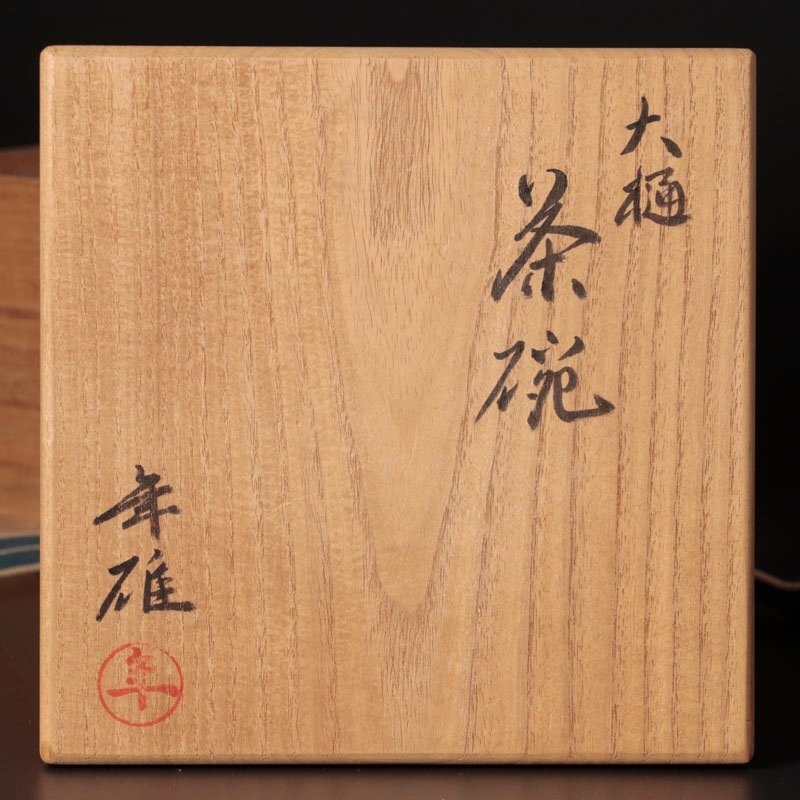 大樋
茶碗
年雄
年